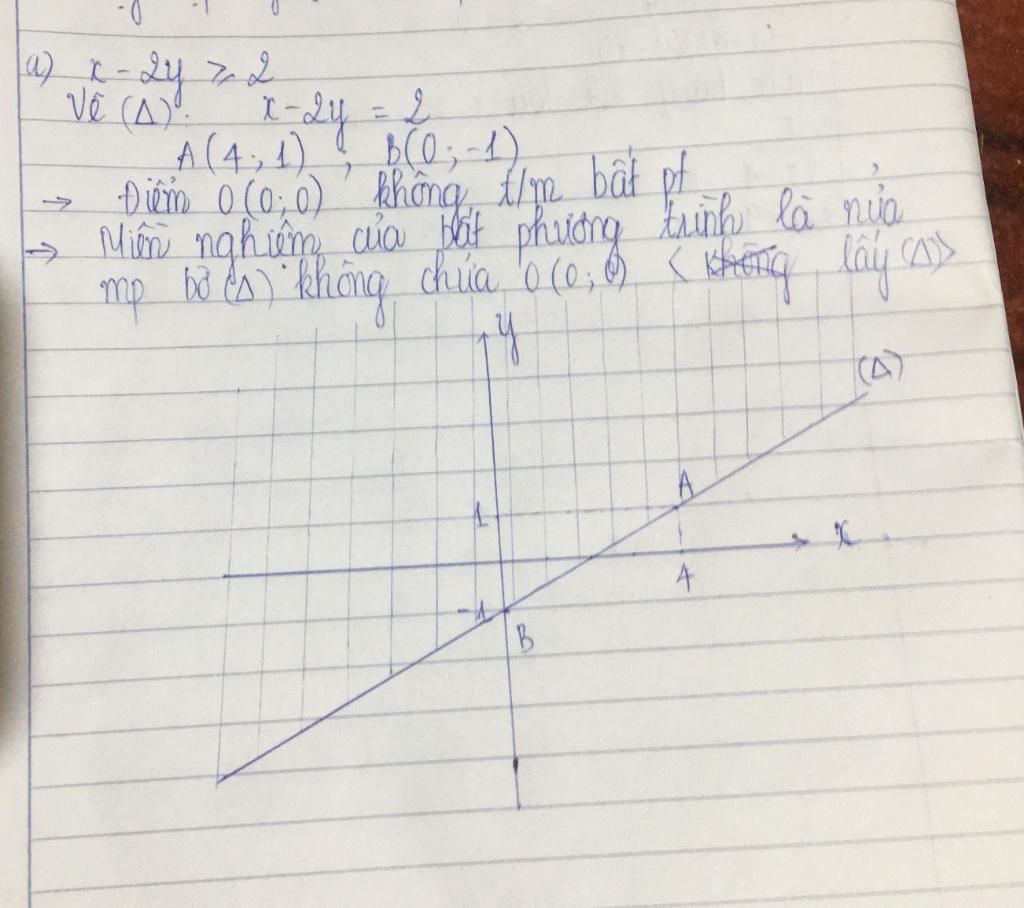 a) x - 2y ≥ 2
Vẽ (Δ): x - 2y = 2
A(4;1) ; B(0;-1)
→ Điểm O(0;0) không t/m bất pt
→ Miền nghiệm của bất phương trình là nửa
mp bờ (Δ) không chứa O(0;0) < không lấy (Δ)>
y
(Δ)
A
1
x
4
-1
B